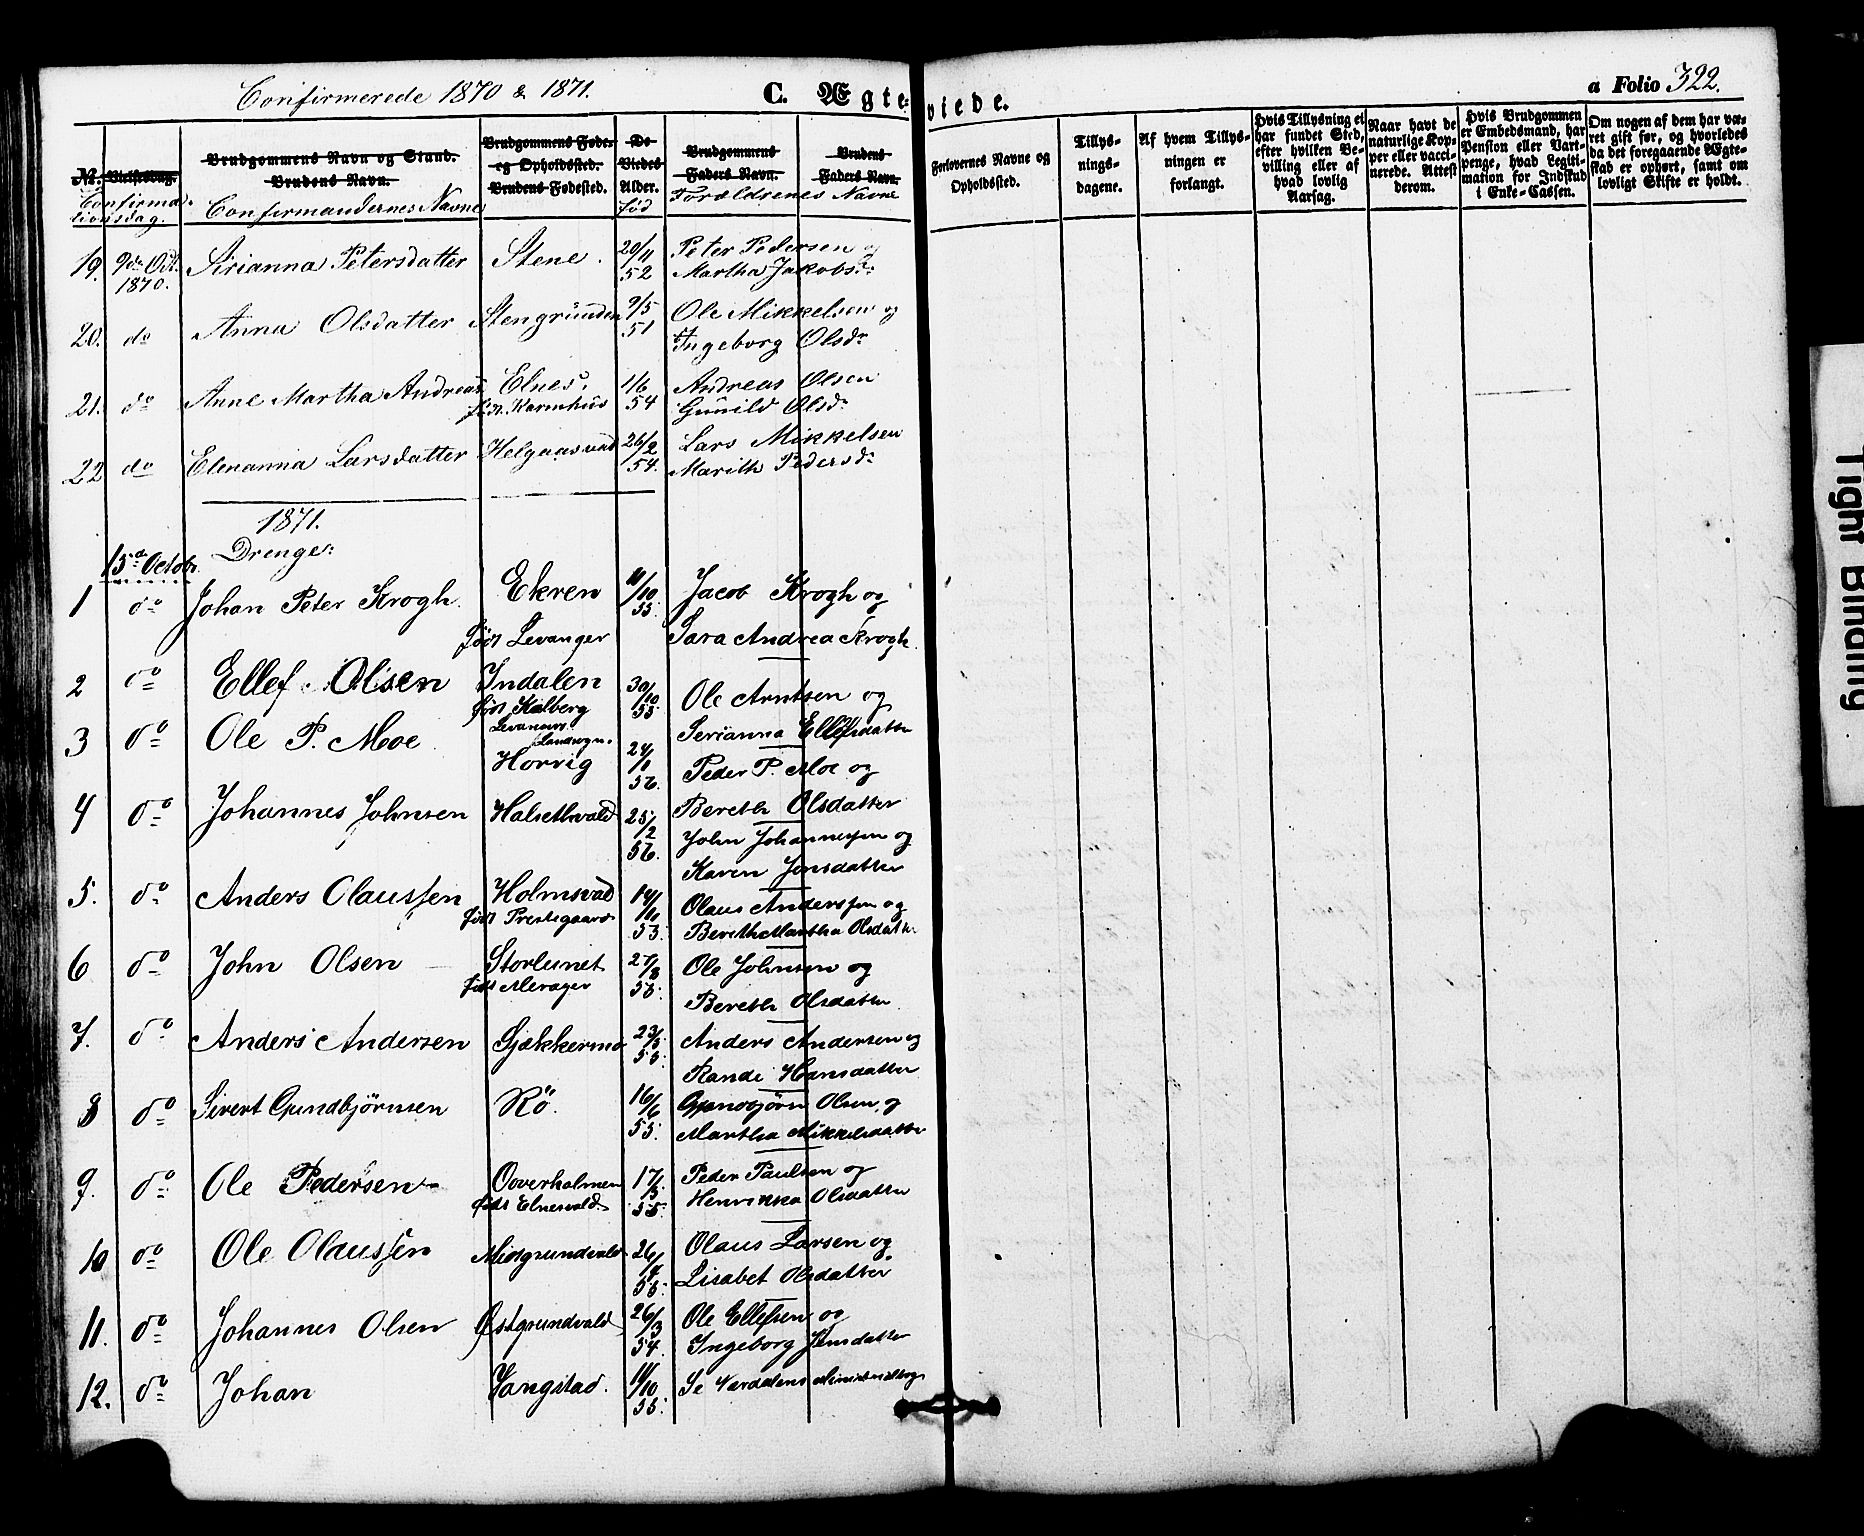 Confirmerede 1870 & 1871.
C. Ægteviede.
a Folio 322.
№. Vielsesdag. Brudgommens Navn og Stand. Brudens Navn. Brudgommens Føde- og Opholdssted. Brudens Fødested. De Viedes Alder. Brudgommens Faders Navn. Brudens Faders Navn.
Confirmationsdag. Confirmandernes Navne fød Forældrenes Navne
Forlovernes Navne og Opholdssted.
Tillysningsdagene.
Af hvem Tillysningen er forlangt.
Hvis Tillysning ei har fundet Sted, efter hvilken Bevilling eller af hvad lovlig Aarsag.
Naar havt de naturlige Kopper eller vaccinerede. Attest derom.
Hvis Brudgommen er Embedsmand, har Pension eller Vartpenge, hvad Legitimation for Indskud i Enke-Cassen.
Om nogen af dem har været gift før, og hvorledes da det foregaaende Ægteskab er ophørt, samt om lovligt Skifte er holdt.
19. 9de Oct. 1870. Sirianna Petersdatter Stene. 20/11 52 Peter Pedersen og
Martha Jakobsdr
20. do Anna Olsdatter Stengrunden 9/5 51 Ole Mikkelsen og
Ingeborg Olsdr
21. do Anne Martha Andreas Elnes. 1/6 54 Andreas Olsen
Karmhus Gunild Olsdr
22 do Elenanna Larsdatter Helgaasvald 26/2 54. Lars Mikkelsen
Marith Pedersdr
1871.
Drenge:
15d Octobr
1 do Johan Peter Krogh. Ekren 11/10 55. Jacob Krogh og
født Levanger Sara Andrea Krogh.
2 do Ellef Olsen Indalen 30/10 55 Ole Arntsen og
født Kalberg Serianna Ellefsdatter
Levanger Landsogn.
3 do Ole P. Moe Horvig 24/1 56. Peder P. Moe og
Bereth Olsdatter
4 do Johannes Johnsen Halsethvald 25/2 56. John Johannessen og
Karen Jonsdatter
5. do Anders Olaussen Holmsvad 14/10 53. Olaus Anderssen og
født Prestegaard Bereth Martha Olsdatter
6 do John Olsen Storlunet 27/8 55. Ole Johnsen og
født Merager Bereth Olsdatter
7. do Anders Andersen Gjækkermo 23/5 55. Anders Andersen og
Rande Hansdatter
8 do Sivert Gundbjørnsen Rø. 16/6 55. Gundbjørn Olsen og
Martha Mikkelsdatter
9. do Ole Pedersen Overholmen 17/3 55. Peder Paulsen og
født Elnesvald Henrikka Olsdatter
10 do Ole Olaussen Midtgrundvald 26/4 55. Olaus Larsen og
Lisabet Olsdatter
11. do Johannes Olsen Østgrundvald 26/3 54. Ole Ellefsen og
Ingeborg Jensdatter
12. do Johan Vangstad. 11/10 55. Se Værdalens Ministerialbog
Tight Binding